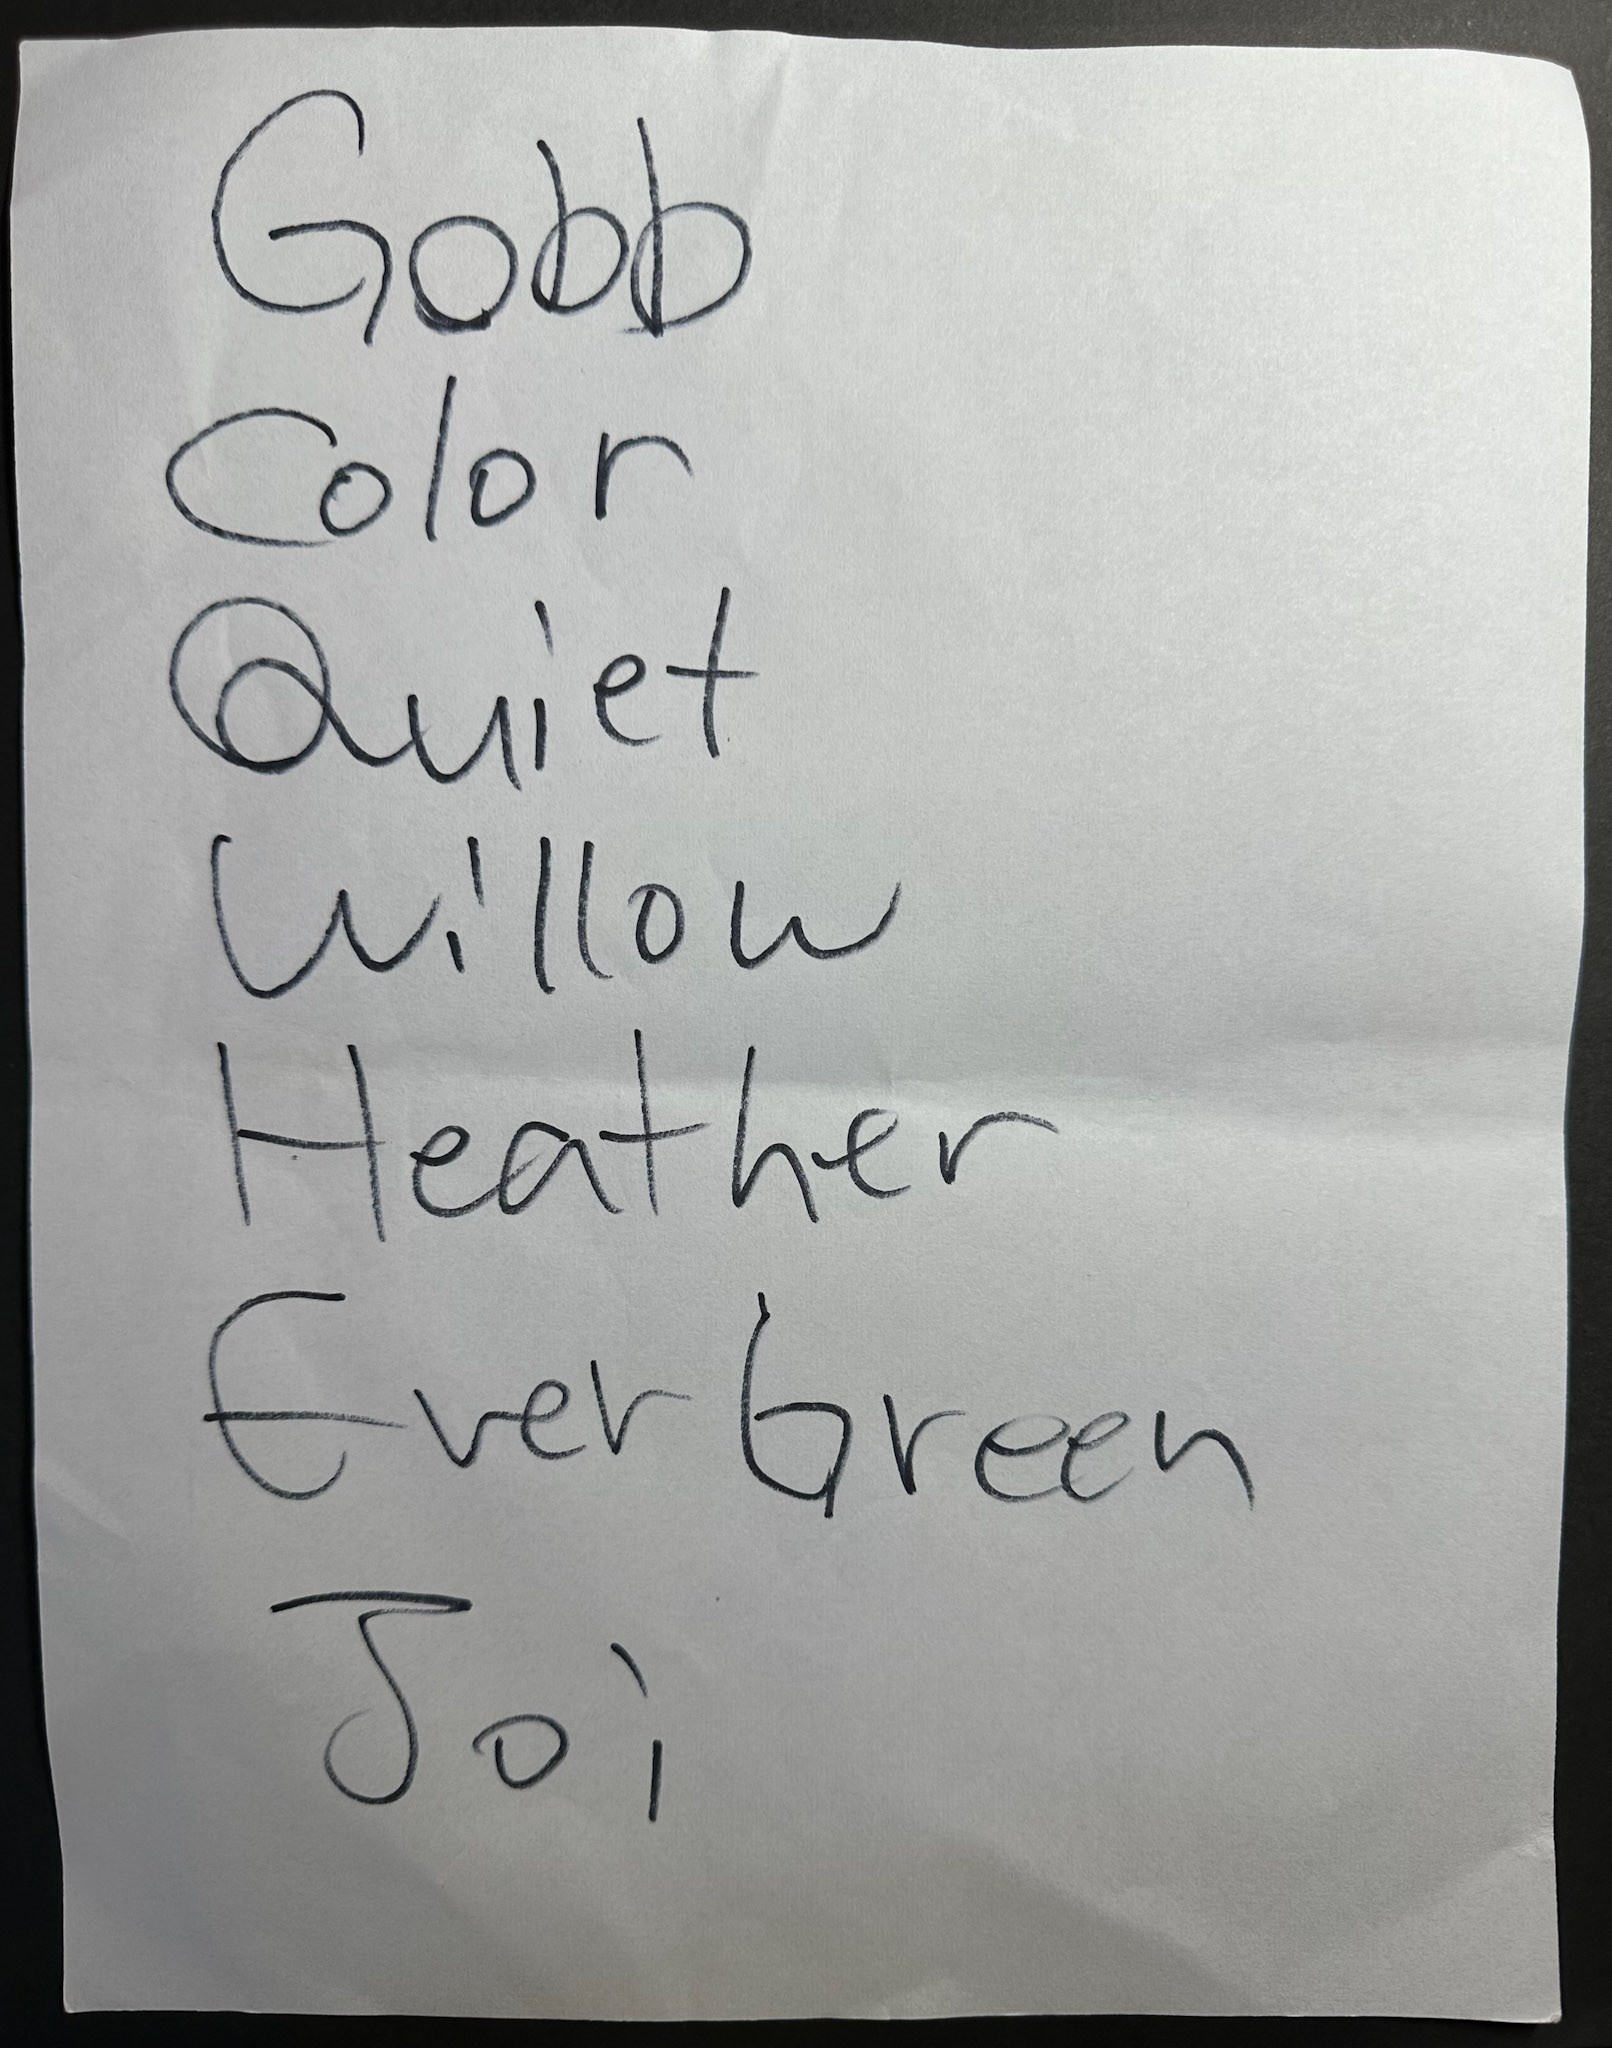 Gobb
Color
Quiet
Willow
Heather
EverGreen
Joi